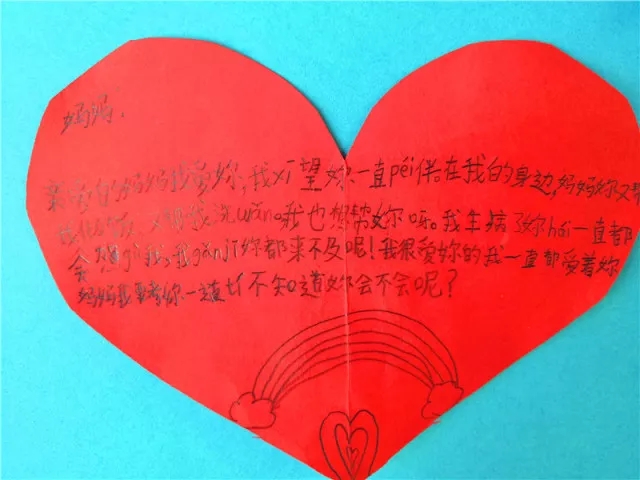 妈妈:
亲爱的妈妈我爱妳,我xī望妳一直péi伴在我的身边,妈妈妳又帮
我 又帮我洗wǎn。我也想帮妳呀。我生病了妳hái一直都
会 我,我gǎnjī妳都来不及呢!我很爱妳的我一直都爱着妳
妈妈我要考妳一道tí不知道妳会不会呢?